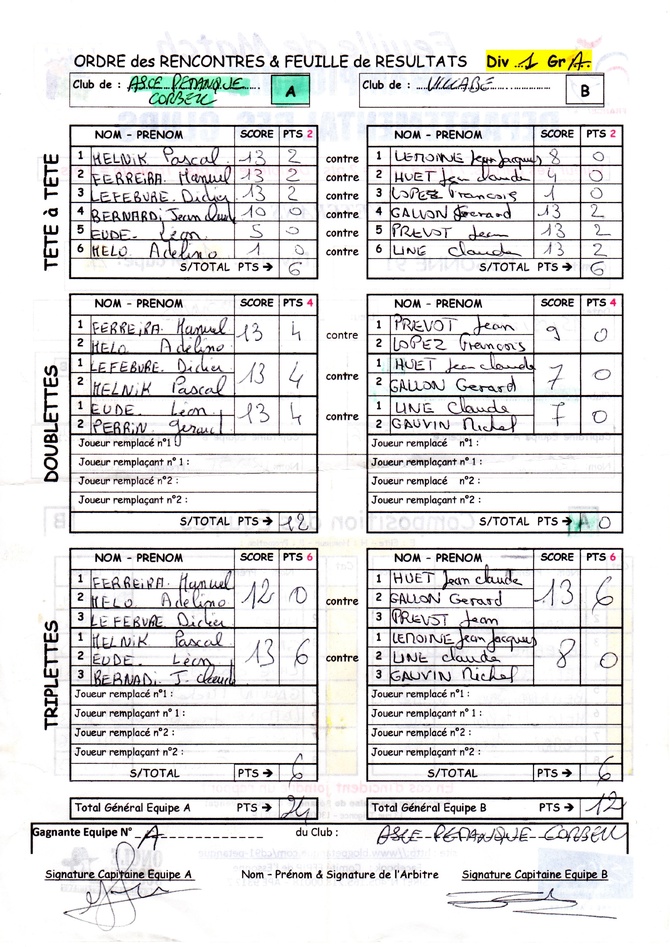 ORDRE des RENCONTRES & FEUILLE de RESULTATS Div 1 Gr A
Club de : ASCE PETANQUE CORBEIL A Club de : VILLABÉ B
TÊTE à TÊTE
NOM - PRENOM SCORE PTS 2 NOM - PRENOM SCORE PTS 2
1 MELNIK Pascal 13 2 contre 1 LEMOINE Jean Jacques 8 0
2 FERREIRA. Manuel 13 2 contre 2 HUET Jean claude 4 0
3 LEFEBURE. Didier 13 2 contre 3 LOPEZ Francois 1 0
4 BERNARDI Jean claude 10 0 contre 4 GALLON Gerard 13 2
5 EUDE. Léon 5 0 contre 5 PREVOT Jean 13 2
6 MELO. Adelino 1 0 contre 6 LINE Claude 13 2
S/TOTAL PTS → 6 S/TOTAL PTS → 6
DOUBLETTES
NOM - PRENOM SCORE PTS 4 NOM - PRENOM SCORE PTS 4
1 FERREIRA. Manuel 13 4 contre 1 PREVOT Jean 9 0
2 MELO. Adelino 2 LOPEZ Francois
1 LEFEBURE. Didier 13 4 contre 1 HUET Jean claude 7 0
2 MELNIK Pascal 2 GALLON Gerard
1 EUDE. Léon 13 4 contre 1 LINE Claude 7 0
2 PERRIN. Gerard 2 GAUVIN Michel
Joueur remplacé n°1 : Joueur remplacé n°1 :
Joueur remplaçant n° 1 : Joueur remplaçant n° 1 :
Joueur remplacé n°2 : Joueur remplacé n°2 :
Joueur remplaçant n°2 : Joueur remplaçant n°2 :
S/TOTAL PTS → 12 S/TOTAL PTS → 0
TRIPLETTES
NOM - PRENOM SCORE PTS 6 NOM - PRENOM SCORE PTS 6
1 FERREIRA. Manuel 12 0 contre 1 HUET Jean claude 13 6
2 MELO. Adelino 2 GALLON Gerard
3 LEFEBURE Didier 3 PREVOT Jean
1 MELNIK Pascal 13 6 contre 1 LEMOINE Jean Jacques 8 0
2 EUDE. Léon 2 LINE claude
3 BERNADI J. claude 3 GAUVIN Michel
Joueur remplacé n°1 : Joueur remplacé n°1 :
Joueur remplaçant n° 1 : Joueur remplaçant n° 1 :
Joueur remplacé n°2 : Joueur remplacé n°2 :
Joueur remplaçant n°2 : Joueur remplaçant n°2 :
S/TOTAL PTS → 6 S/TOTAL PTS → 6
Total Général Equipe A PTS → 24 Total Général Equipe B PTS → 12
Gagnante Equipe N° A du Club : ASCE PETANQUE CORBEIL
Signature Capitaine Equipe A Nom - Prénom & Signature de l'Arbitre Signature Capitaine Equipe B